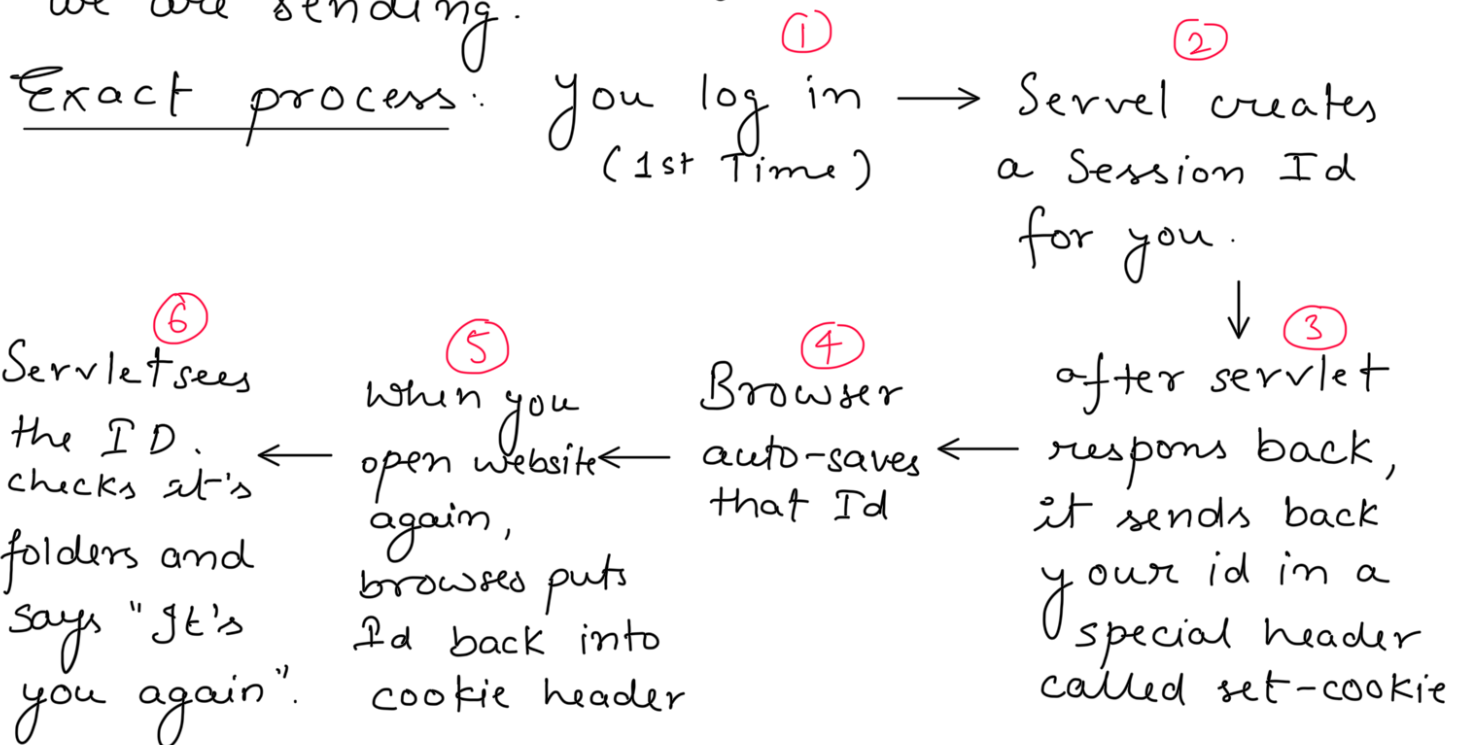 we are sending.
Exact process: you log in → Servel creates
(1st Time)
①
②
a Session Id
for you.
↓
③
after servlet
respons back,
it sends back
your id in a
special header
called set-cookie
←
④
Browser
auto-saves
that Id
←
⑤
when you
open website
again,
browses puts
Id back into
cookie header
←
⑥
Servlet sees
the ID.
checks it's
folders and
says "It's
you again".